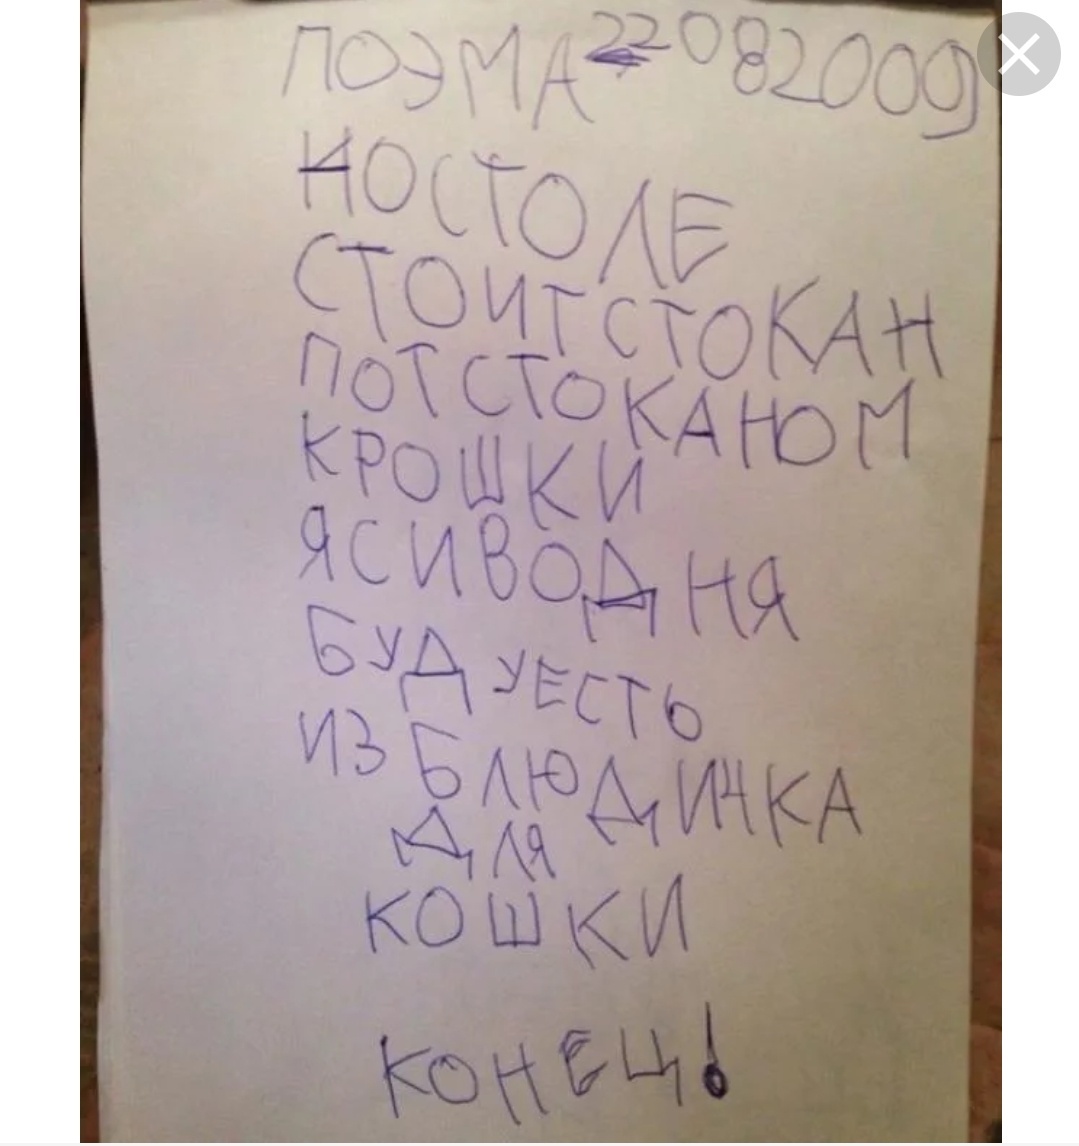 ПОЭМА 22082009
НОСТОЛЕ
СТОИТСТОКАН
ПОТСТОКАНОМ
КРОШКИ
ЯСИВОДНЯ
БУДУЕСТЬ
ИЗ БЛЮДИЧКА
ДЛЯ
КОШКИ
КОНЕЦ!